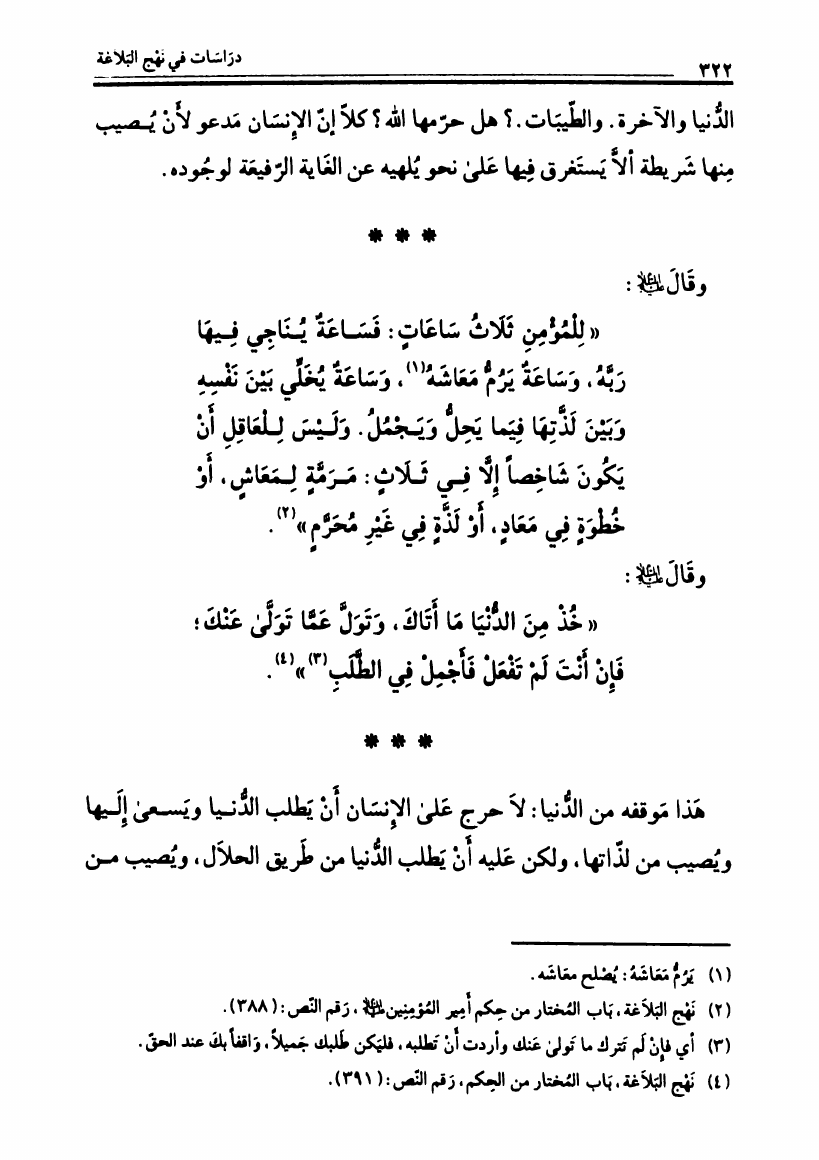 ٣٢٢
درَاسَات في نَهْج البَلاغَة
الدُّنيا والآخرة. والطّيبَات.؟ هل حرّمها الله؟ كلاّ إنّ الاِنسَان مَدعو لأَنْ يُـصيب
مِنها شَريطة ألاَّ يَستَغرق فِيها عَلىٰ نحو يُلهيه عن الغَاية الرّفيعَة لوجُوده.
* * *
وقَالَ عليه السلام :
«لِلْمُؤْمِنِ ثَلَاثُ سَاعَاتٍ: فَسَـاعَةٌ يُـنَاجِي فِـيهَا
رَبَّهُ، وَسَاعَةٌ يَرُمُّ مَعَاشَهُ(١)، وَسَاعَةٌ يُخَلِّي بَيْنَ نَفْسِهِ
وَبَيْنَ لَذَّتِهَا فِيَما يَحِلُّ وَيَـجْمُلُ. وَلَـيْسَ لِـلْعَاقِلِ أَنْ
يَكُونَ شَاخِصاً إِلَّا فِـي ثَـلَاثٍ: مَـرَمَّةٍ لِـمَعَاشٍ، أَوْ
خُطْوَةٍ فِي مَعَادٍ، أَوْ لَذَّةٍ فِي غَيْرِ مُحَرَّمٍ»(٢).
وقَالَ عليه السلام :
«خُذْ مِنَ الدُّنْيَا مَا أَتَاكَ، وَتَوَلَّ عَمَّا تَوَلَّىٰ عَنْكَ؛
فَإِنْ أَنْتَ لَمْ تَفْعَلْ فَأَجْمِلْ فِي الطَّلَبِ(٣)»(٤).
* * *
هَذا مَوقفه من الدُّنيا: لاَ حرج عَلىٰ الاِنسَان أَنْ يَطلب الدُّنـيا ويَسـعىٰ إِلَـيها
ويُصيب من لذّاتها، ولكن عَليه أَنْ يَطلب الدُّنيا من طَريق الحلاَل، ويُصيب مـن
(١) يَرُمُّ مَعَاشَهُ: يُصْلح معَاشَه.
(٢) نَهْج البَلاَغة، بَاب المُختار من حِكم أَمِير المُؤمِنِين عليه السلام ، رَقم النّص: (٣٨٨).
(٣) أي فإِنْ لَم تَترك ما تَولىٰ عَنك وأردت أَنْ تَطلبه، فليَكن طَلبك جَميلاً، وَاقفاً بكَ عند الحقّ.
(٤) نَهْج البَلاَغة، بَاب المُختار من الحِكم، رَقم النّص: (٣٩١).